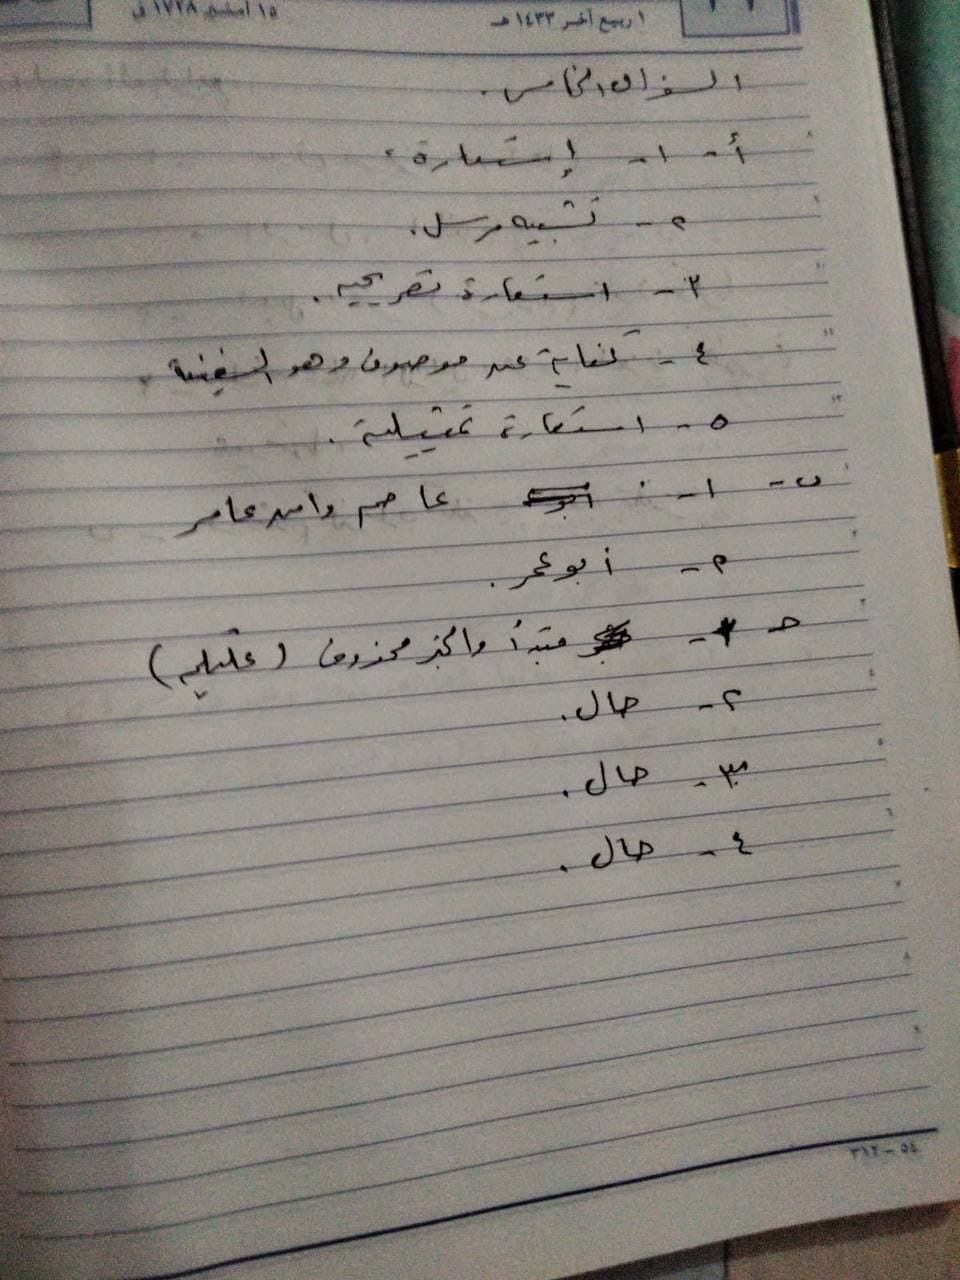 ١٥ أمشير ١٧٢٨ ق
١ ربيع آخر ١٤٣٣ هـ
السؤال الخامس.
أ- ١- إستعارة.
٢- تشبيه مرسل.
٣- استعارة تصريحيه.
٤- كناية عن موصوف وهو السفينة.
٥- استعارة تمثيلية.
ب- ١- عاصم وابن عامر
٢- أبو عمر.
حـ ١- مبتدأ والخبر محذوف (عليه)
٢- حال.
٣- حال.
٤- حال.
٥٤ - ٣١٢